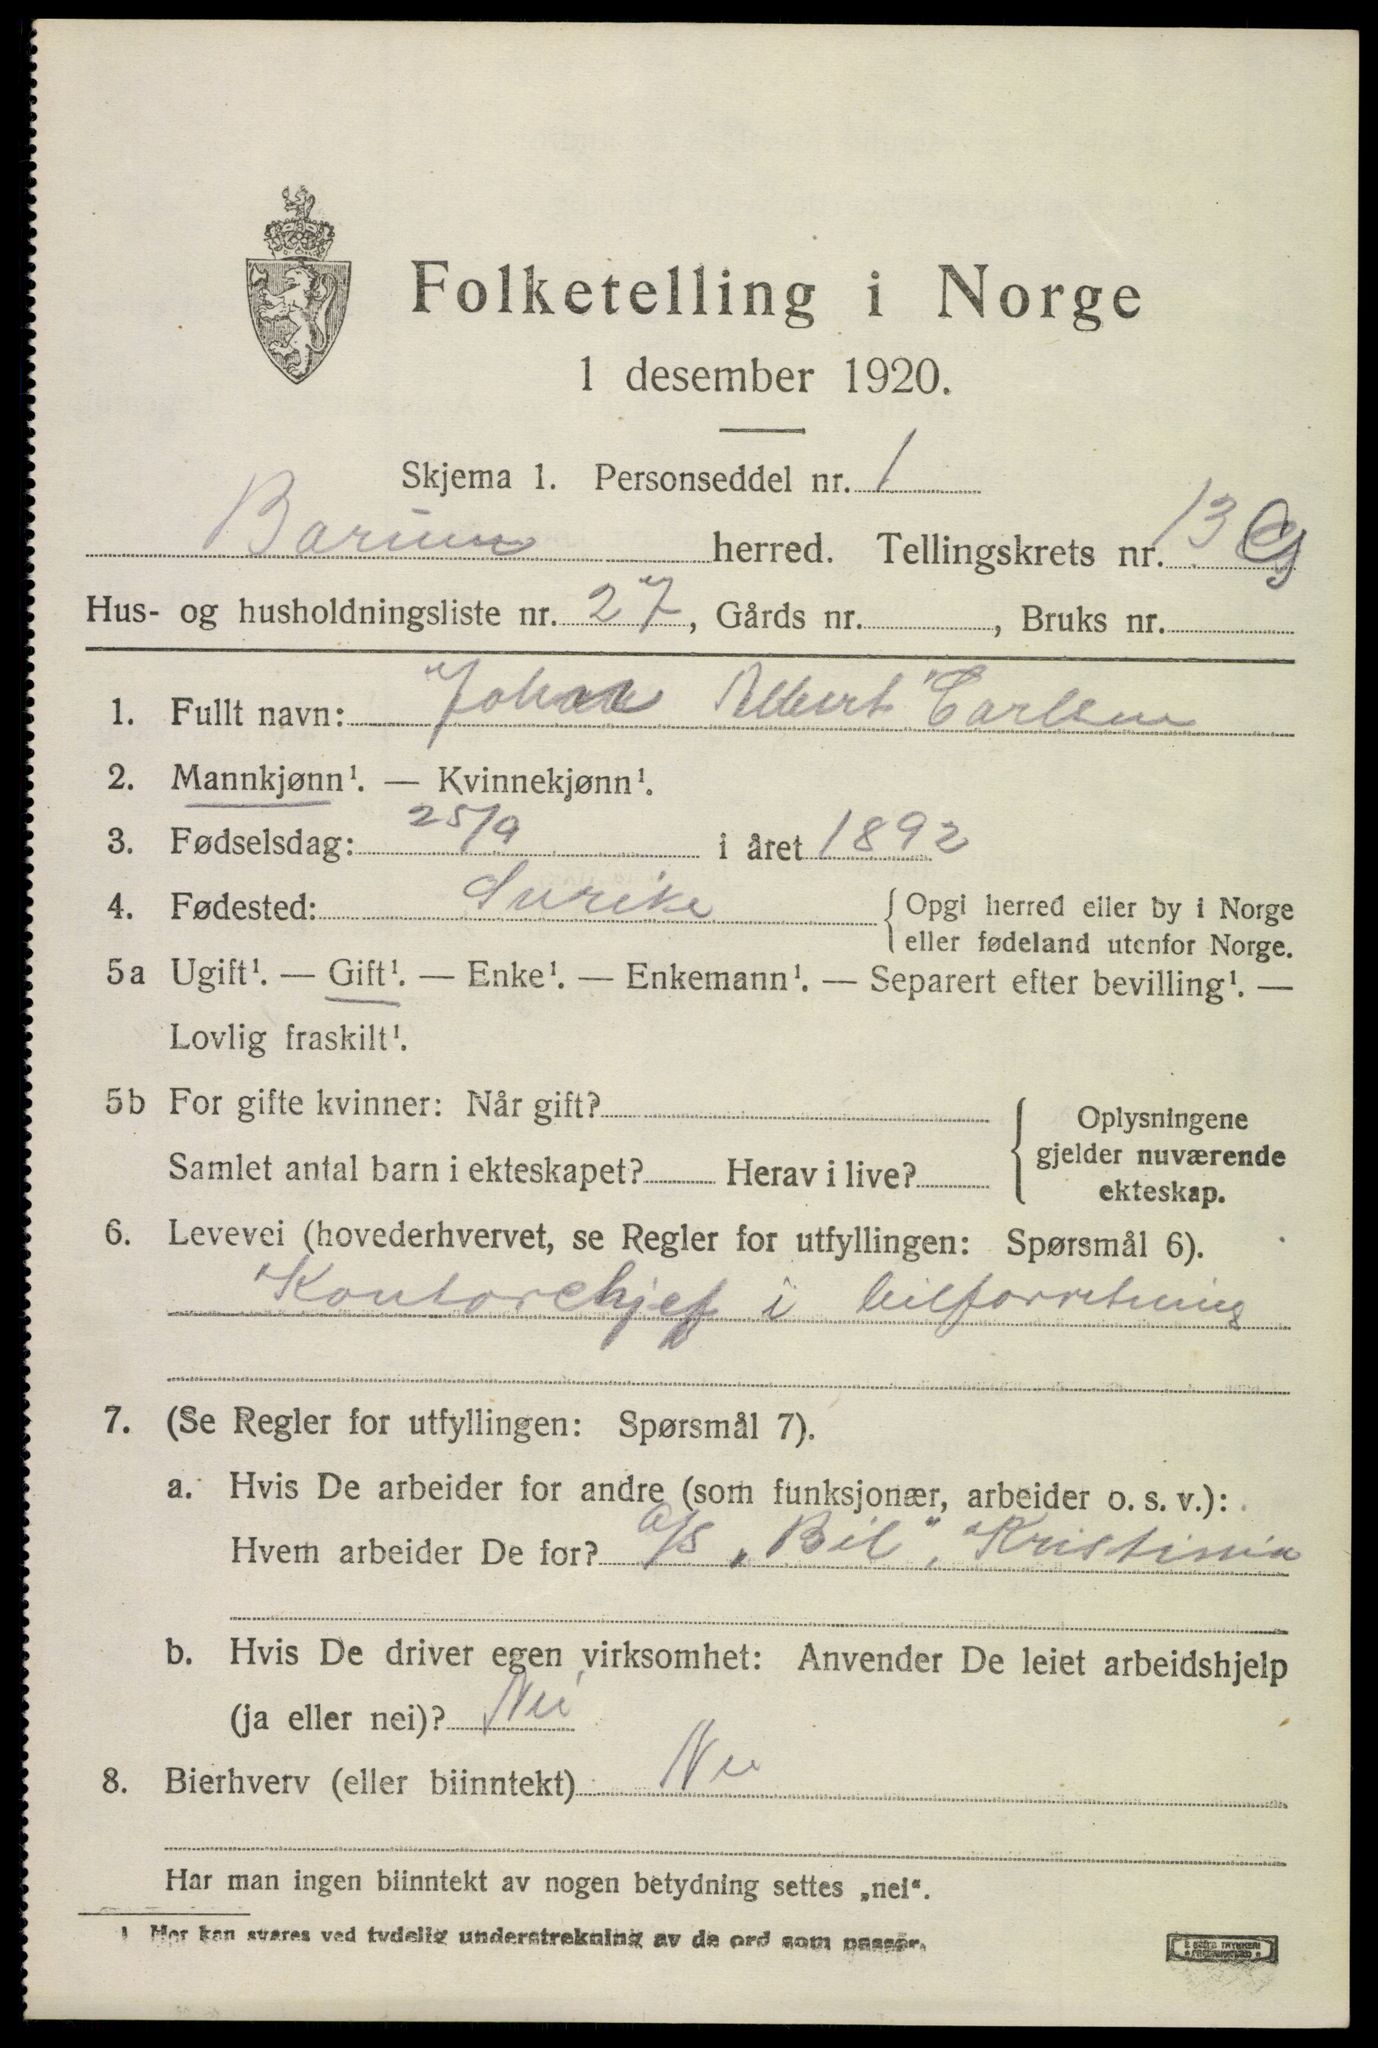 Folketelling i Norge
1 desember 1920.
Skjema 1. Personseddel nr. 1
Barum herred. Tellingskrets nr. 13
Hus- og husholdningsliste nr. 27, Gårds nr. , Bruks nr.
1. Fullt navn: Johan Albert Carlsen
2. Mannkjønn¹. — Kvinnekjønn¹.
3. Fødselsdag: 25/9 i året 1892
4. Fødested: { Opgi herred eller by i Norge
eller fødeland utenfor Norge.
5a Ugift¹. — Gift¹. — Enke¹. — Enkemann¹. — Separert efter bevilling¹. —
Lovlig fraskilt¹.
5b For gifte kvinner: Når gift? { Oplysningene
gjelder nuværende
Samlet antal barn i ekteskapet? Herav i live?
ekteskap.
6. Levevei (hovederhvervet, se Regler for utfyllingen: Spørsmål 6).
Kontorchjef i bilforretning
7. (Se Regler for utfyllingen: Spørsmål 7).
a. Hvis De arbeider for andre (som funksjonær, arbeider o. s. v.):
Hvem arbeider De for? a/s „Bil", Kristinia
b. Hvis De driver egen virksomhet: Anvender De leiet arbeidshjelp
(ja eller nei)? Nei
8. Bierhverv (eller biinntekt) Nei
Har man ingen biinntekt av nogen betydning settes „nei“.
1 Her kan svares ved tydelig understrekning av de ord som passer.